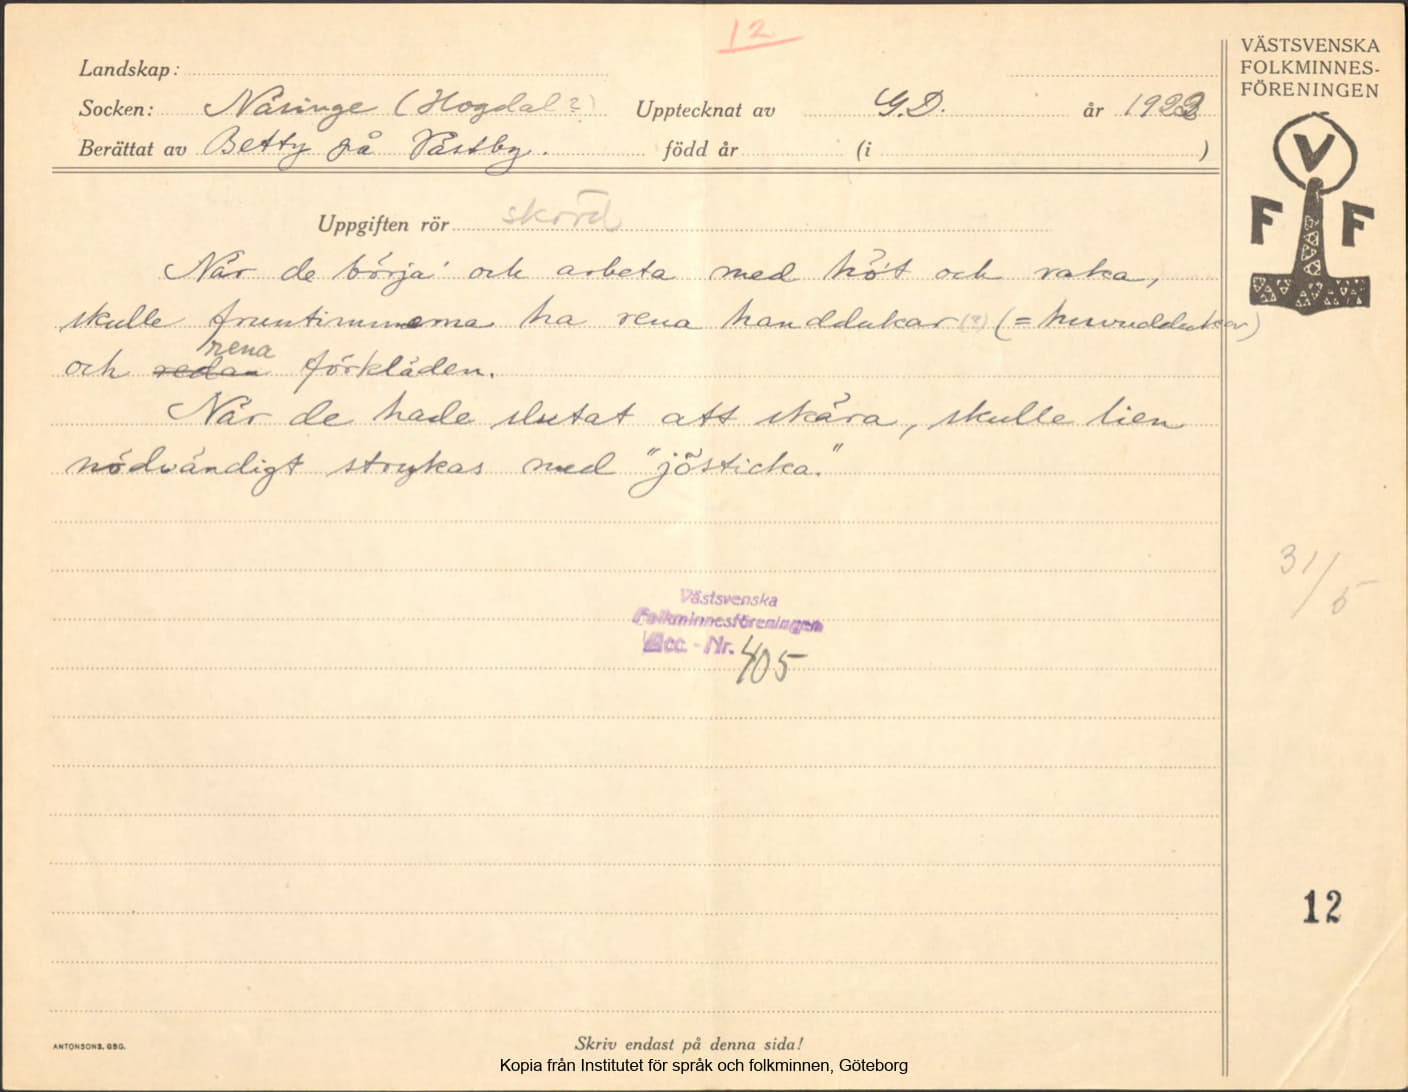 12
VÄSTSVENSKA
FOLKMINNES-
FÖRENINGEN
V
F F
Landskap:
Socken: Näsinge (Hogdal?) Upptecknat av G.D. år 1922
Berättat av Betty på Västby. född år (i )
Uppgiften rör skörd
När de börja' och arbeta med höt och raka,
skulle fruntimmerna ha rena handdukar (?) (= huvuddukar)
rena
och redan förkläden.
När de hade slutat att skära, skulle lien
nödvändigt strykas med "jösticka."
Västsvenska
Folkminnesföreningen
Acc. - Nr. 405
31/5
12
ANTONSONS, GBG.
Skriv endast på denna sida!
Kopia från Institutet för språk och folkminnen, Göteborg